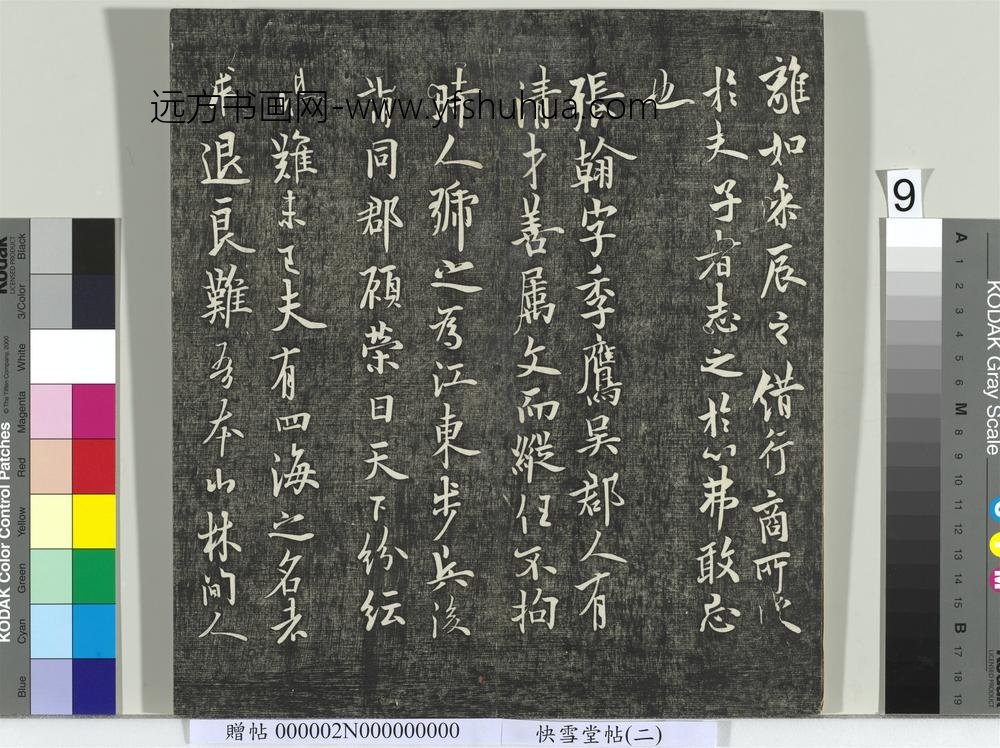 離如參辰之錯行商所以
於夫子者志之於心弗敢忘
也
張翰字季鷹吳郡人有
清才善属文而縱任不拘
時人號之為江東步兵後
謂同郡顧榮曰天下紛紜
禍難未已夫有四海之名者
求退良難吾本山林間人
远方书画网-www.yfshuhua.com
9
Kodak
LICENSED PRODUCT
Black
3/Color
White
Magenta
Red
Yellow
Green
Cyan
Blue
KODAK Color Control Patches
© The Tiffen Company, 2000
KODAK Gray Scale
A 1 2 3 4 5 6 M 8 9 10 11 12 13 14 15 B 17 18 19
C
Y
M
Kodak
LICENSED PRODUCT
贈帖 000002N000000000
快雪堂帖(二)